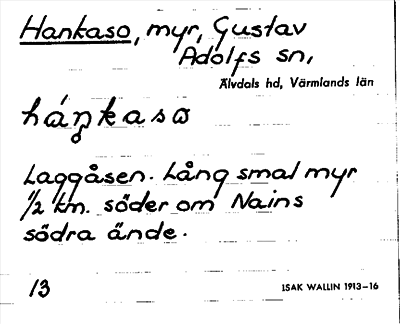 Hankaso, myr, Gustav
Adolfs sn,
Älvdals hd, Värmlands län
Laggåsen. Lång smal myr
1/2 km. söder om Nains
södra ände.
13
ISAK WALLIN 1913-16